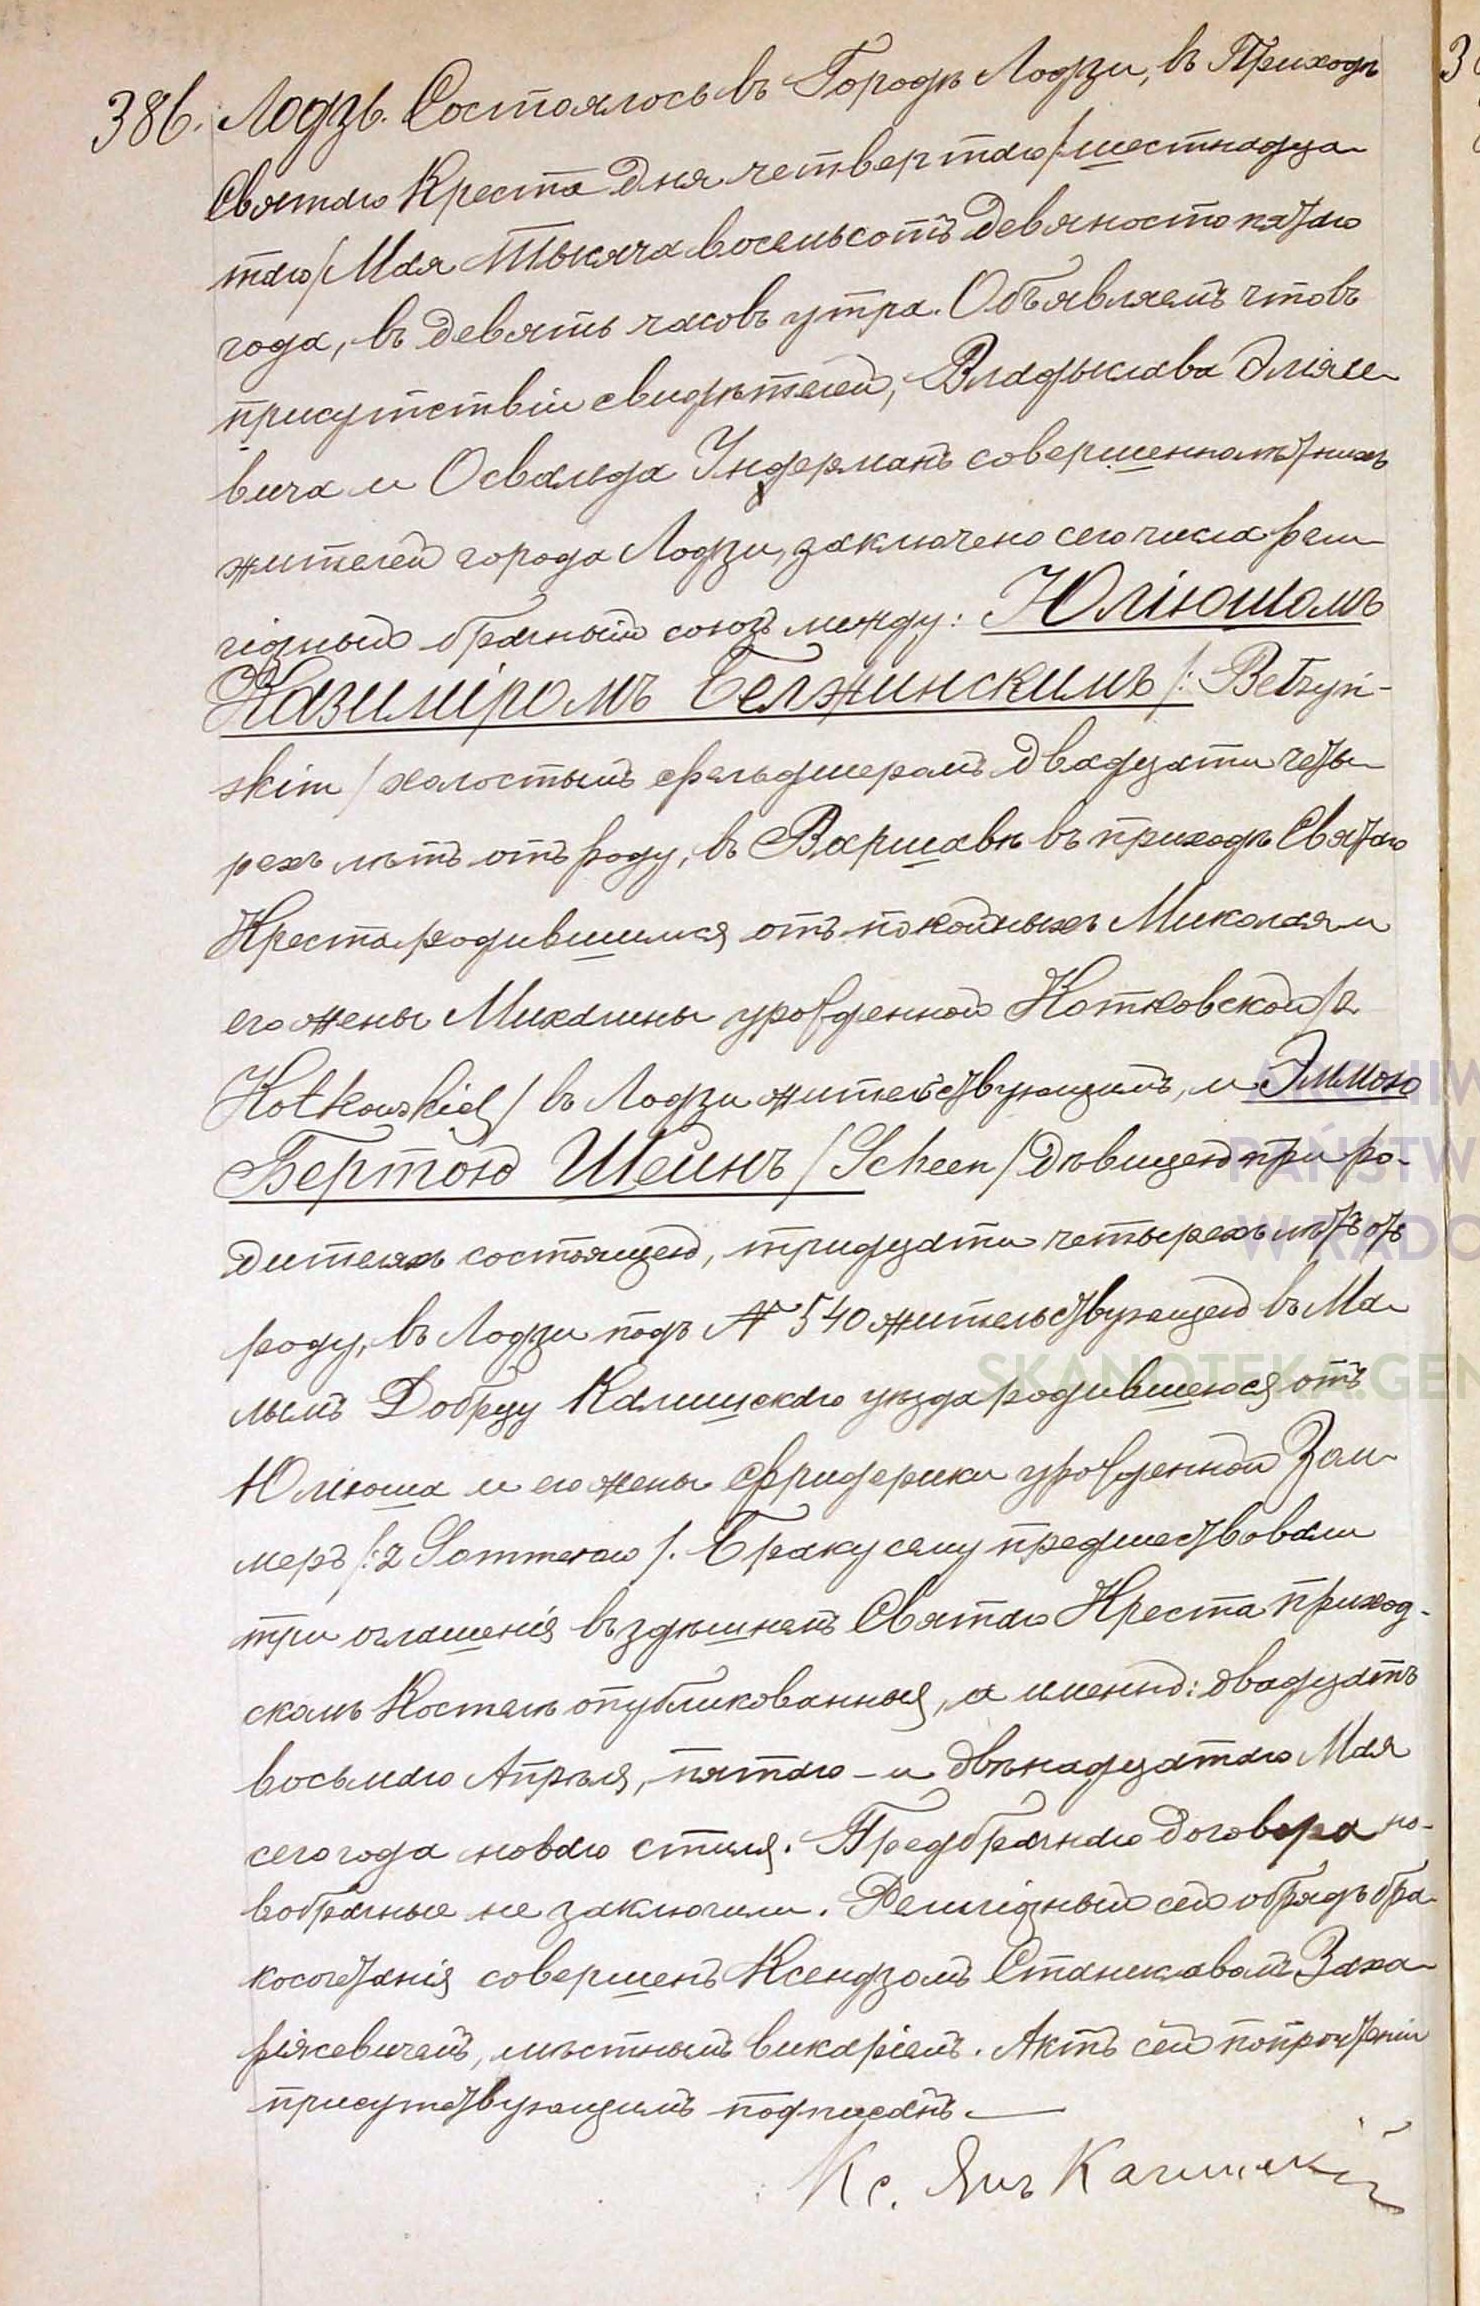 386. Лодзь. Состоялось въ Городѣ Лодзи, въ Приходѣ
Святаго Креста дня четвертаго /шестнадца-
таго/ Мая тысяча восемьсотъ девяносто пятаго
года, въ девять часовъ утра. Объявляемъ что въ
присутствіи свидѣтелей, Владыслава Эліяше-
вича и Освальда Ундерманъ совершеннолѣтнихъ
жителей города Лодзи, заключено сего числа рели-
гіозный брачный союзъ между: Юліюшомъ
Казиміромъ Белжинскимъ /: Bełżyń-
skim / холостымъ фельдшеромъ двадцати четы-
рехъ лѣтъ отъ роду, въ Варшавѣ въ приходѣ Святаго
Креста родившимся отъ покойныхъ Миколая и
его жены Михалины урожденной Котковской /z
Kotkowskich / въ Лодзи жительствующимъ, и Эммою
Бертою Шеинъ / Scheen / дѣвицею при ро-
дителяхъ состоящею, тридцати четырехъ лѣтъ отъ
роду, въ Лодзи подъ № 540 жительствующею въ Ма-
лымъ Добрцу Калишскаго уѣзда родившеюся отъ
Юліюша и его жены Фридерики урожденной Зом-
меръ /: z Sommerow /. Браку сему предшествовали
три оглашенія въ здѣшнемъ Святаго Креста приход-
скомъ Костелѣ опубликованныя, а именно: двадцать
восьмаго Апрѣля, пятаго - и двѣнадцатаго Мая
сего года новаго стиля. Предбрачнаго договора но-
вобрачные не заключили. Религіозный сей обрядъ бра-
косочетанія совершенъ Ксендзомъ Станиславомъ Заха-
ріясевичемъ, мѣстнымъ викаріемъ. Актъ сей по прочтеніи
присутствующимъ подписанъ.
Кс. Янъ
ARCHIW
PAŃSTW
W RADO
SKANOTEKA.GEN